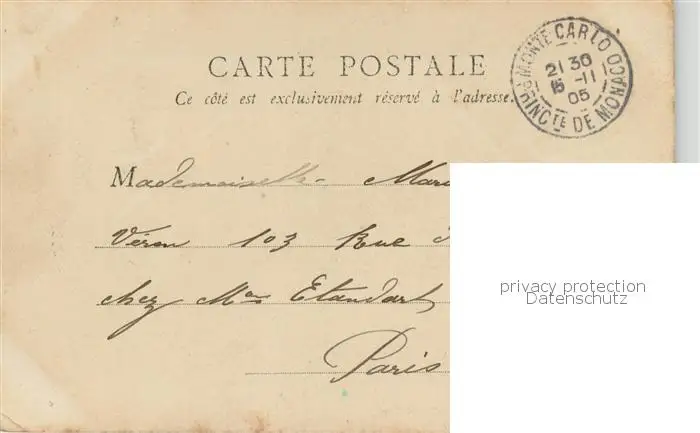 CARTE POSTALE
Ce côté est exclusivement réservé à l'adresse.
MONTE CARLO
21 30
-11
05
PRINCTE DE MONACO
Mademoiselle
103 Rue
chez Mme Etandart
Paris
privacy protection
Datenschutz